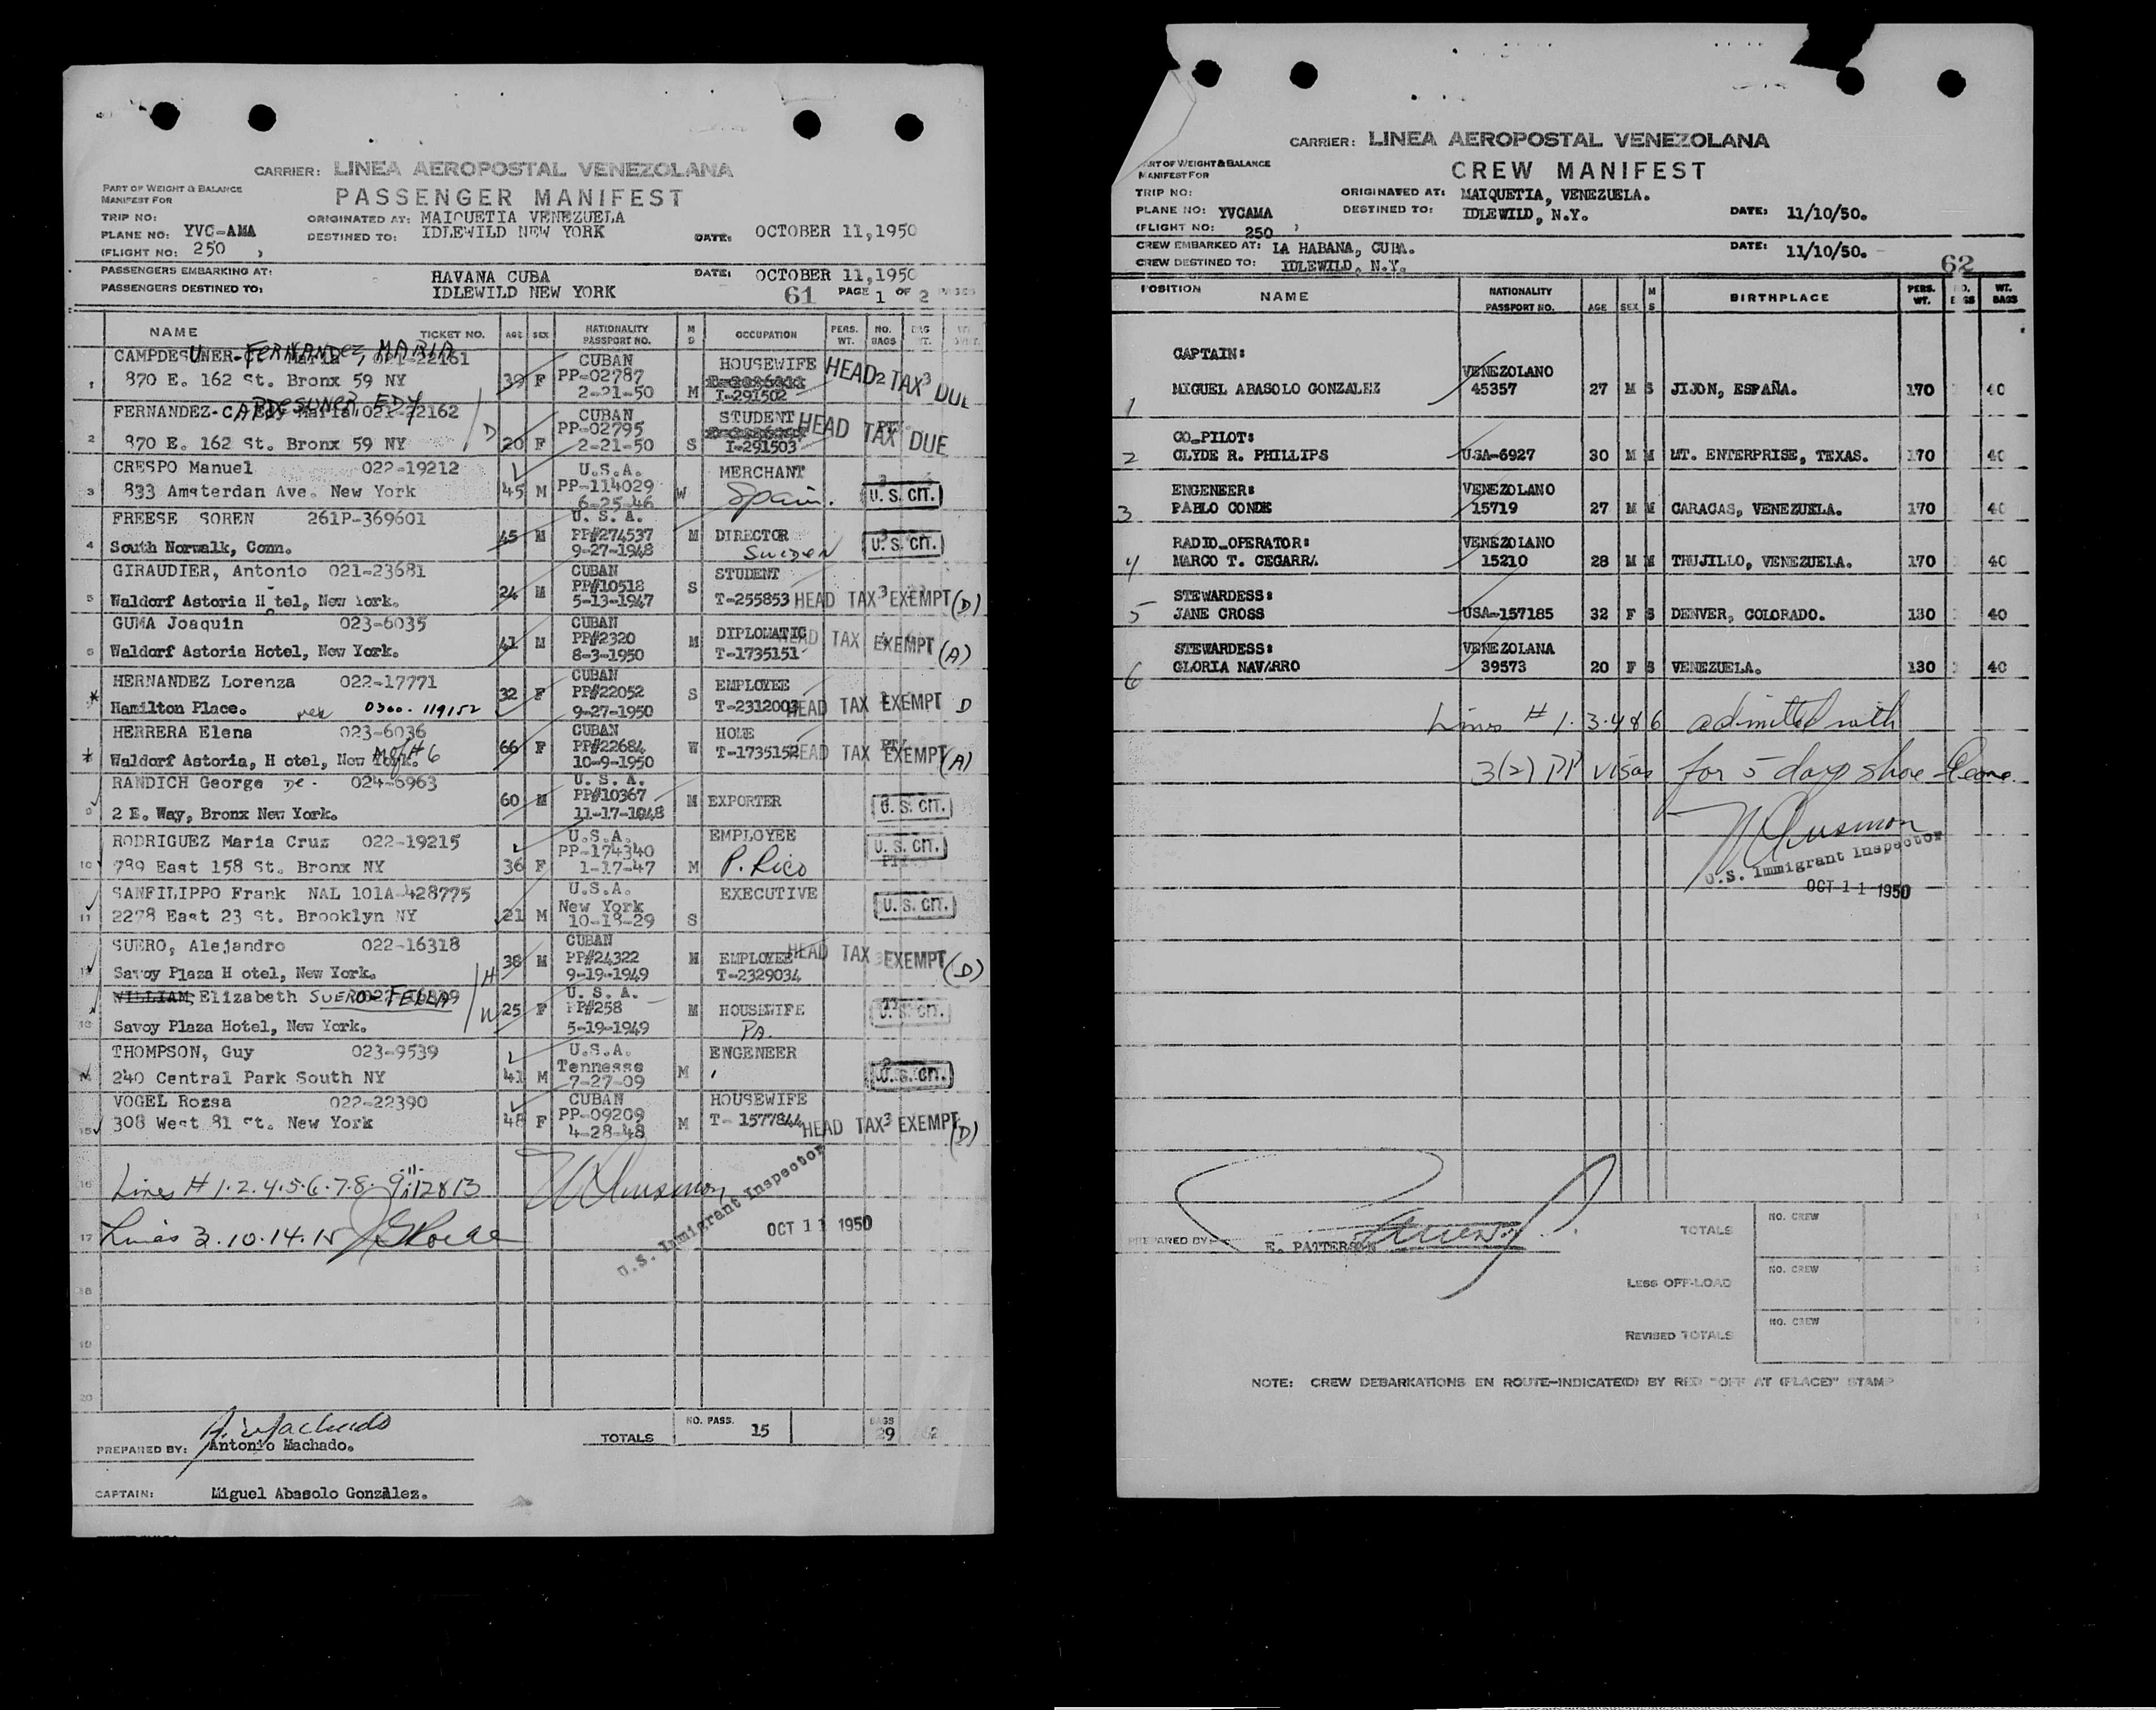 CARRIER: LINEA AEROPOSTAL VENEZOLANA
PART OF WEIGHT & BALANCE
MANIFEST FOR
PASSENGER MANIFEST
TRIP NO:
ORIGINATED AT: MAIQUETIA VENEZUELA
PLANE NO: YVC-AMA
DESTINED TO: IDLEWILD NEW YORK
DATE: OCTOBER 11, 1950
(FLIGHT NO: 250 )
PASSENGERS EMBARKING AT: HAVANA CUBA
DATE: OCTOBER 11, 1950
PASSENGERS DESTINED TO: IDLEWILD NEW YORK
61 PAGE 1 OF 2
NAME TICKET NO. AGE SEX NATIONALITY PASSPORT NO. M S OCCUPATION PERS. WT. NO. BAGS
CAMPDESUNER-FERNANDEZ MARIA 021-22161 CUBAN HOUSEWIFE
1 870 E. 162 St. Bronx 59 NY 39 F PP-02787 HEAD TAX DUE
2-21-50 M I-291502
FERNANDEZ-CAMPDESUNER EDY Maria 021-22162 CUBAN STUDENT
PP-02795 HEAD TAX DUE
2 870 E. 162 St. Bronx 59 NY D 20 F 2-21-50 S I-291503
CRESPO Manuel 022-19212 U.S.A. MERCHANT
3 833 Amsterdan Ave. New York 45 M PP-114029 W Spain. U.S. CIT.
6-25-46
FREESE SOREN 261P-369601 U. S. A.
4 South Norwalk, Conn. 45 M PP#274537 M DIRECTOR U.S. CIT.
9-27-1948 SWEDEN
GIRAUDIER, Antonio 021-23681 CUBAN STUDENT
5 Waldorf Astoria Hotel, New York. 24 M PP#10518 S
5-13-1947 T-255853 HEAD TAX EXEMPT (D)
GUMA Joaquin 023-6035 CUBAN
6 Waldorf Astoria Hotel, New York. 41 M PP#2320 M DIPLOMATIC HEAD TAX EXEMPT (A)
8-3-1950 T-1735151
HERNANDEZ Lorenza 022-17771 CUBAN EMPLOYEE
Hamilton Place. 0300-119152 32 F PP#22052 S
9-27-1950 T-2312003 HEAD TAX EXEMPT D
HERRERA Elena 023-6036 CUBAN HOME
Waldorf Astoria, H otel, New York. M of #6 66 F PP#22684 W T-1735152 HEAD TAX EXEMPT (A)
10-9-1950
RANDICH George 024-6963 U. S. A.
9 2 E. Way, Bronx New York. 60 M PP#10367 M EXPORTER U.S. CIT.
11-17-1948
RODRIGUEZ Maria Cruz 022-19215 U.S.A. EMPLOYEE
10 789 East 158 St. Bronx NY 36 F PP-174340 U.S. CIT.
1-17-47 M P. Rico
SANFILIPPO Frank NAL 101A-428775 U.S.A. EXECUTIVE
11 2278 East 23 St. Brooklyn NY 21 M New York U.S. CIT.
10-18-29 S
SUERO, Alejandro 022-16318 CUBAN
12 Savoy Plaza H otel, New York. H 38 M PP#24322 M EMPLOYEE HEAD TAX EXEMPT (D)
9-19-1949 T-2329034
WILLIAM, Elizabeth SUERO-FELLA U. S. A.
13 Savoy Plaza Hotel, New York. W 25 F PP#258 M HOUSEWIFE U.S. CIT.
5-19-1949 PA.
THOMPSON, Guy 023-9539 U.S.A. ENGENEER
14 240 Central Park South NY 41 M Tennesse M U.S. CIT.
7-27-09
VOGEL Rozsa 022-22390 CUBAN HOUSEWIFE
15 308 West 81 St. New York 48 F PP-09209 M T- 1577844 HEAD TAX EXEMPT (D)
4-28-48
16 Lines # 1.2.4.5.6.7.8.9.11.12 & 13
U.S. Immigrant Inspector
17 Lines 3.10.14.15
OCT 11 1950
18
19
20
A. Machado
PREPARED BY: Antonio Machado.
TOTALS NO. PASS. 15 BAGS 29
CAPTAIN: Miguel Abasolo González.
CARRIER: LINEA AEROPOSTAL VENEZOLANA
PART OF WEIGHT & BALANCE
MANIFEST FOR
CREW MANIFEST
TRIP NO: ORIGINATED AT: MAIQUETIA, VENEZUELA.
PLANE NO: YVCAMA DESTINED TO: IDLEWILD, N.Y. DATE: 11/10/50.
(FLIGHT NO: 250 )
CREW EMBARKED AT: LA HABANA, CUBA. DATE: 11/10/50.
CREW DESTINED TO: IDLEWILD, N.Y.
62
POSITION NAME NATIONALITY PASSPORT NO. AGE SEX M S BIRTHPLACE PERS. WT. NO. BAGS WT. BAGS
CAPTAIN: VENEZOLANO
1 MIGUEL ABASOLO GONZALEZ 45357 27 M S JIJON, ESPAÑA. 170 40
CO_PILOT:
2 CLYDE R. PHILLIPS USA-6927 30 M M MT. ENTERPRISE, TEXAS. 170 40
ENGENEER: VENEZOLANO
3 PABLO CONDE 15719 27 M M CARACAS, VENEZUELA. 170 40
RADIO_OPERATOR: VENEZOLANO
4 MARCO T. CEGARRA 15210 28 M M TRUJILLO, VENEZUELA. 170 40
STEWARDESS:
5 JANE CROSS USA-157185 32 F S DENVER, COLORADO. 130 40
STEWARDESS: VENEZOLANA
6 GLORIA NAVARRO 39573 20 F S VENEZUELA. 130 40
Lines # 1.3.4 & 6 admitted with
3(2) PP visas for 5 days shore leave.
U.S. Immigrant Inspector
OCT 11 1950
PREPARED BY: E. PATTERSON
TOTALS NO. CREW
LESS OFF-LOAD NO. CREW
REVISED TOTALS NO. CREW
NOTE: CREW DEBARKATIONS EN ROUTE-INDICATE(D) BY RED "OFF AT (PLACE)" STAMP